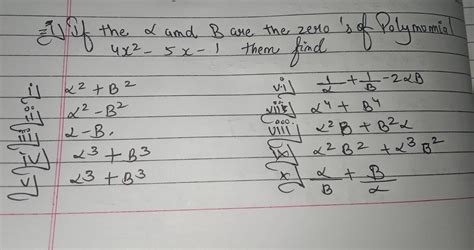 i) if the α and B are the zero's of Polynomial
4x² - 5x - 1 them find
i) α² + B²
ii) α² - B²
iii) α - B.
iv) α³ + B³
v) α³ + B³
vi) 1/α + 1/B - 2αB
vii) α⁴ + B⁴
viii) α²B + B²α
ix) α²B² + α³B²
x) α/B + B/α